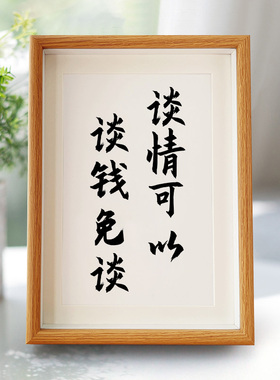 谈情可以
谈钱免谈